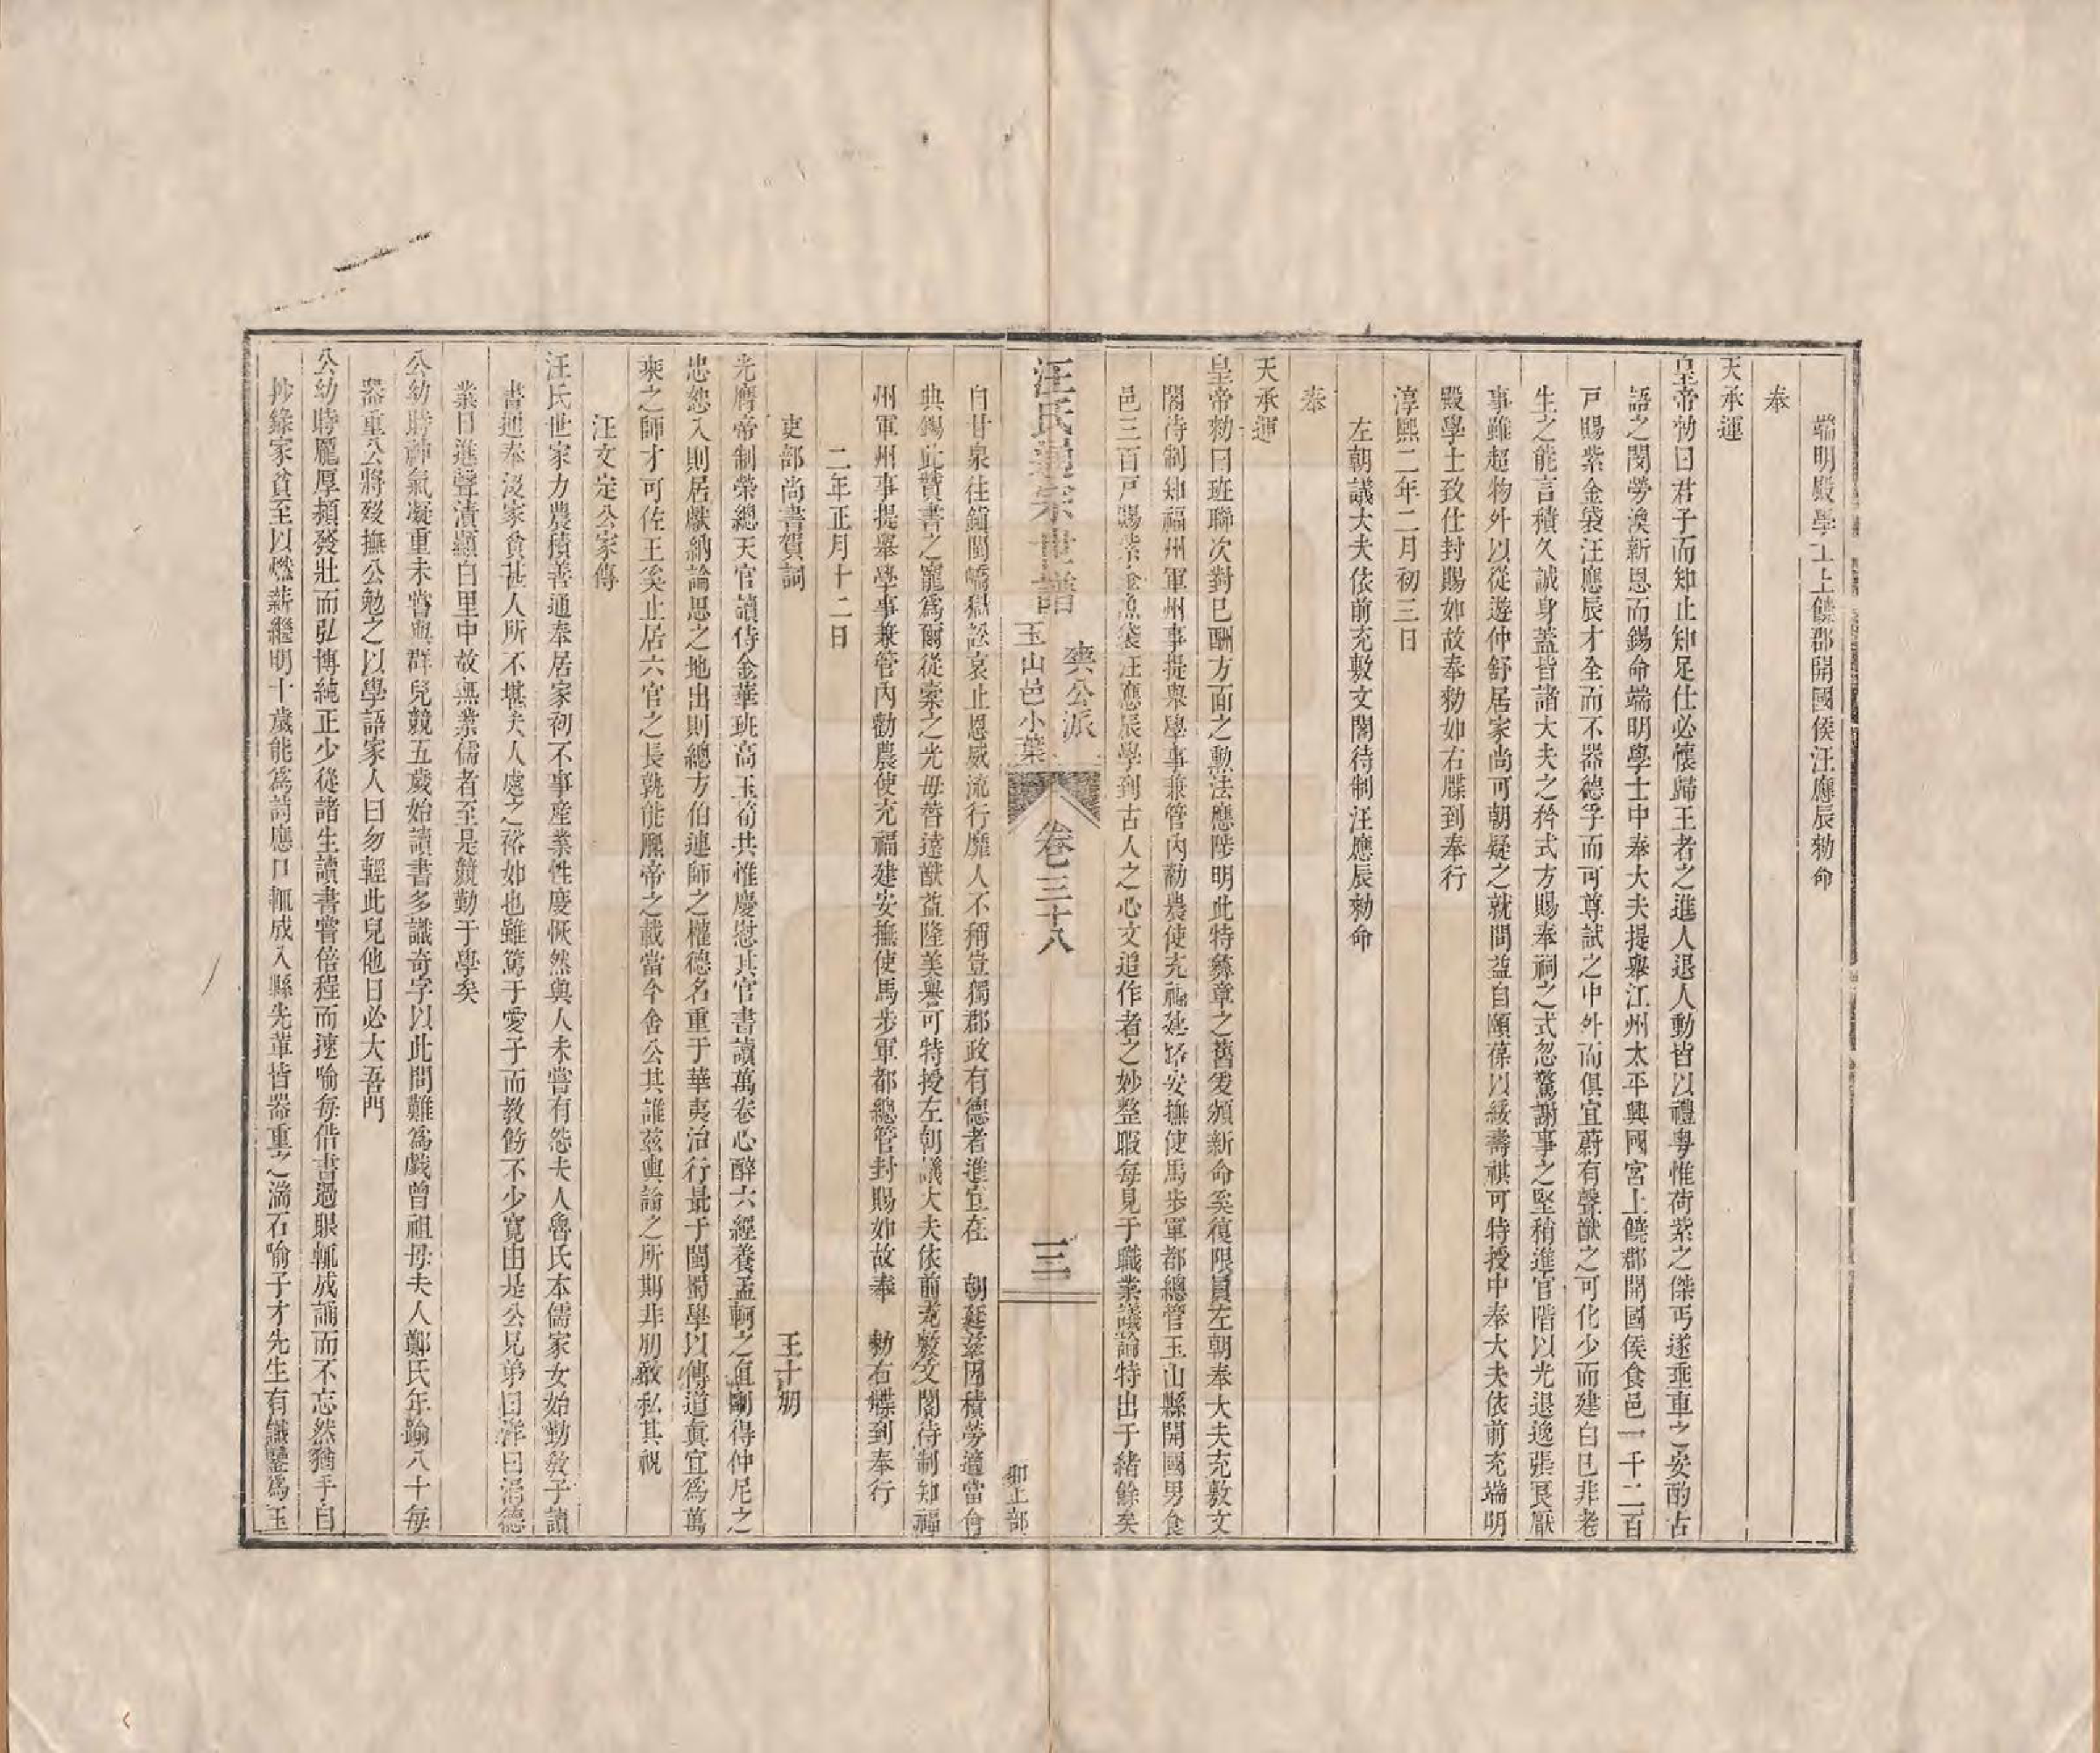 端明殿學士上饒郡開國侯汪應辰勅命
奉
天承運
皇帝勅曰君子而知止知足仕必懷歸王者之進人退人動皆以禮粵惟荷紫之傑丐遂垂車之安酌古
語之閔勞渙新恩而錫命端明學士中奉大夫提舉江州太平興國宮上饒郡開國侯食邑一千二百
戸賜紫金袋汪應辰才全而不器德孚而可尊試之中外而俱宜蔚有聲猷之可化少而建白已非老
生之能言積久誠身蓋皆諸大夫之矜式方賜奉祠之式忽驚謝事之堅稍進官階以光退逸張良厭
事雖超物外以從遊仲舒居家尚可朝疑之就問益自頤葆以綏壽祺可特授中奉大夫依前充端明
殿學士致仕封賜如故奉勅如右牒到奉行
淳熙二年二月初三日
左朝議大夫依前充敷文閣待制汪應辰勅命
奉
天承運
皇帝勅曰班聯次對已酬方面之勲法應陟明此特彝章之舊爰頒新命奚復限員左朝奉大夫充敷文
閣待制知福州軍州事提舉學事兼管內勸農使充福建路安撫使馬步軍都總管玉山縣開國男食
邑三百戸賜紫金魚袋汪應辰學到古人之心文追作者之妙整暇每見于職業議論特出于緒餘矣
汪氏通宗世譜
爽公派
玉山邑小葉
卷三十八
三
卯上部
自甘泉往鎮閩嶠獄訟哀止恩威流行靡人不稱豈獨郡政有德者進宜在 朝廷茲因積勞適當會
典錫此贊書之寵爲爾從橐之光毋替遠猷益隆美譽可特授左朝議大夫依前充敷文閣待制知福
州軍州事提舉學事兼管內勸農使充福建安撫使馬步軍都總管封賜如故奉 勅右牒到奉行
二年正月十二日
吏部尚書賀詞 王十朋
光膺帝制榮總天官讀侍金華班高玉荀共惟慶慰其官書讀萬卷心醉六經養孟軻之直剛得仲尼之
忠恕入則居獻納論思之地出則總方伯連師之權德名重于華夷治行最于閩蜀學以傳道眞宜爲萬
乘之師才可佐王奚止居六官之長孰能熈帝之載當今舍公其誰茲輿論之所期非朋敢私其祝
汪文定公家傳
汪氏世家力農積善通奉居家初不事産業性度恢然與人未嘗有怨夫人魯氏本儒家女始勤教子讀
書通奉沒家貧甚人所不堪夫人處之裕如也雖篤于愛子而教飭不少寛由是公兄弟曰洋曰涓德
業日進聲漬顯白里中故無業儒者至是競勤于學矣
公幼時神氣凝重未嘗與群兒競五歲始讀書多識奇字以此問難爲戲曾祖母夫人鄭氏年踰八十每
器重公將歿撫公勉之以學語家人曰勿輕此兒他日必大吾門
公幼時龐厚頴發壯而弘博純正少從諸生讀書嘗倍程而速喻每借書過眼輒成誦而不忘然猶手自
抄錄家貧至以燃薪繼明十歲能爲詩應口輒成入縣先輩皆器重之湍石喻子才先生有識鑒爲玉